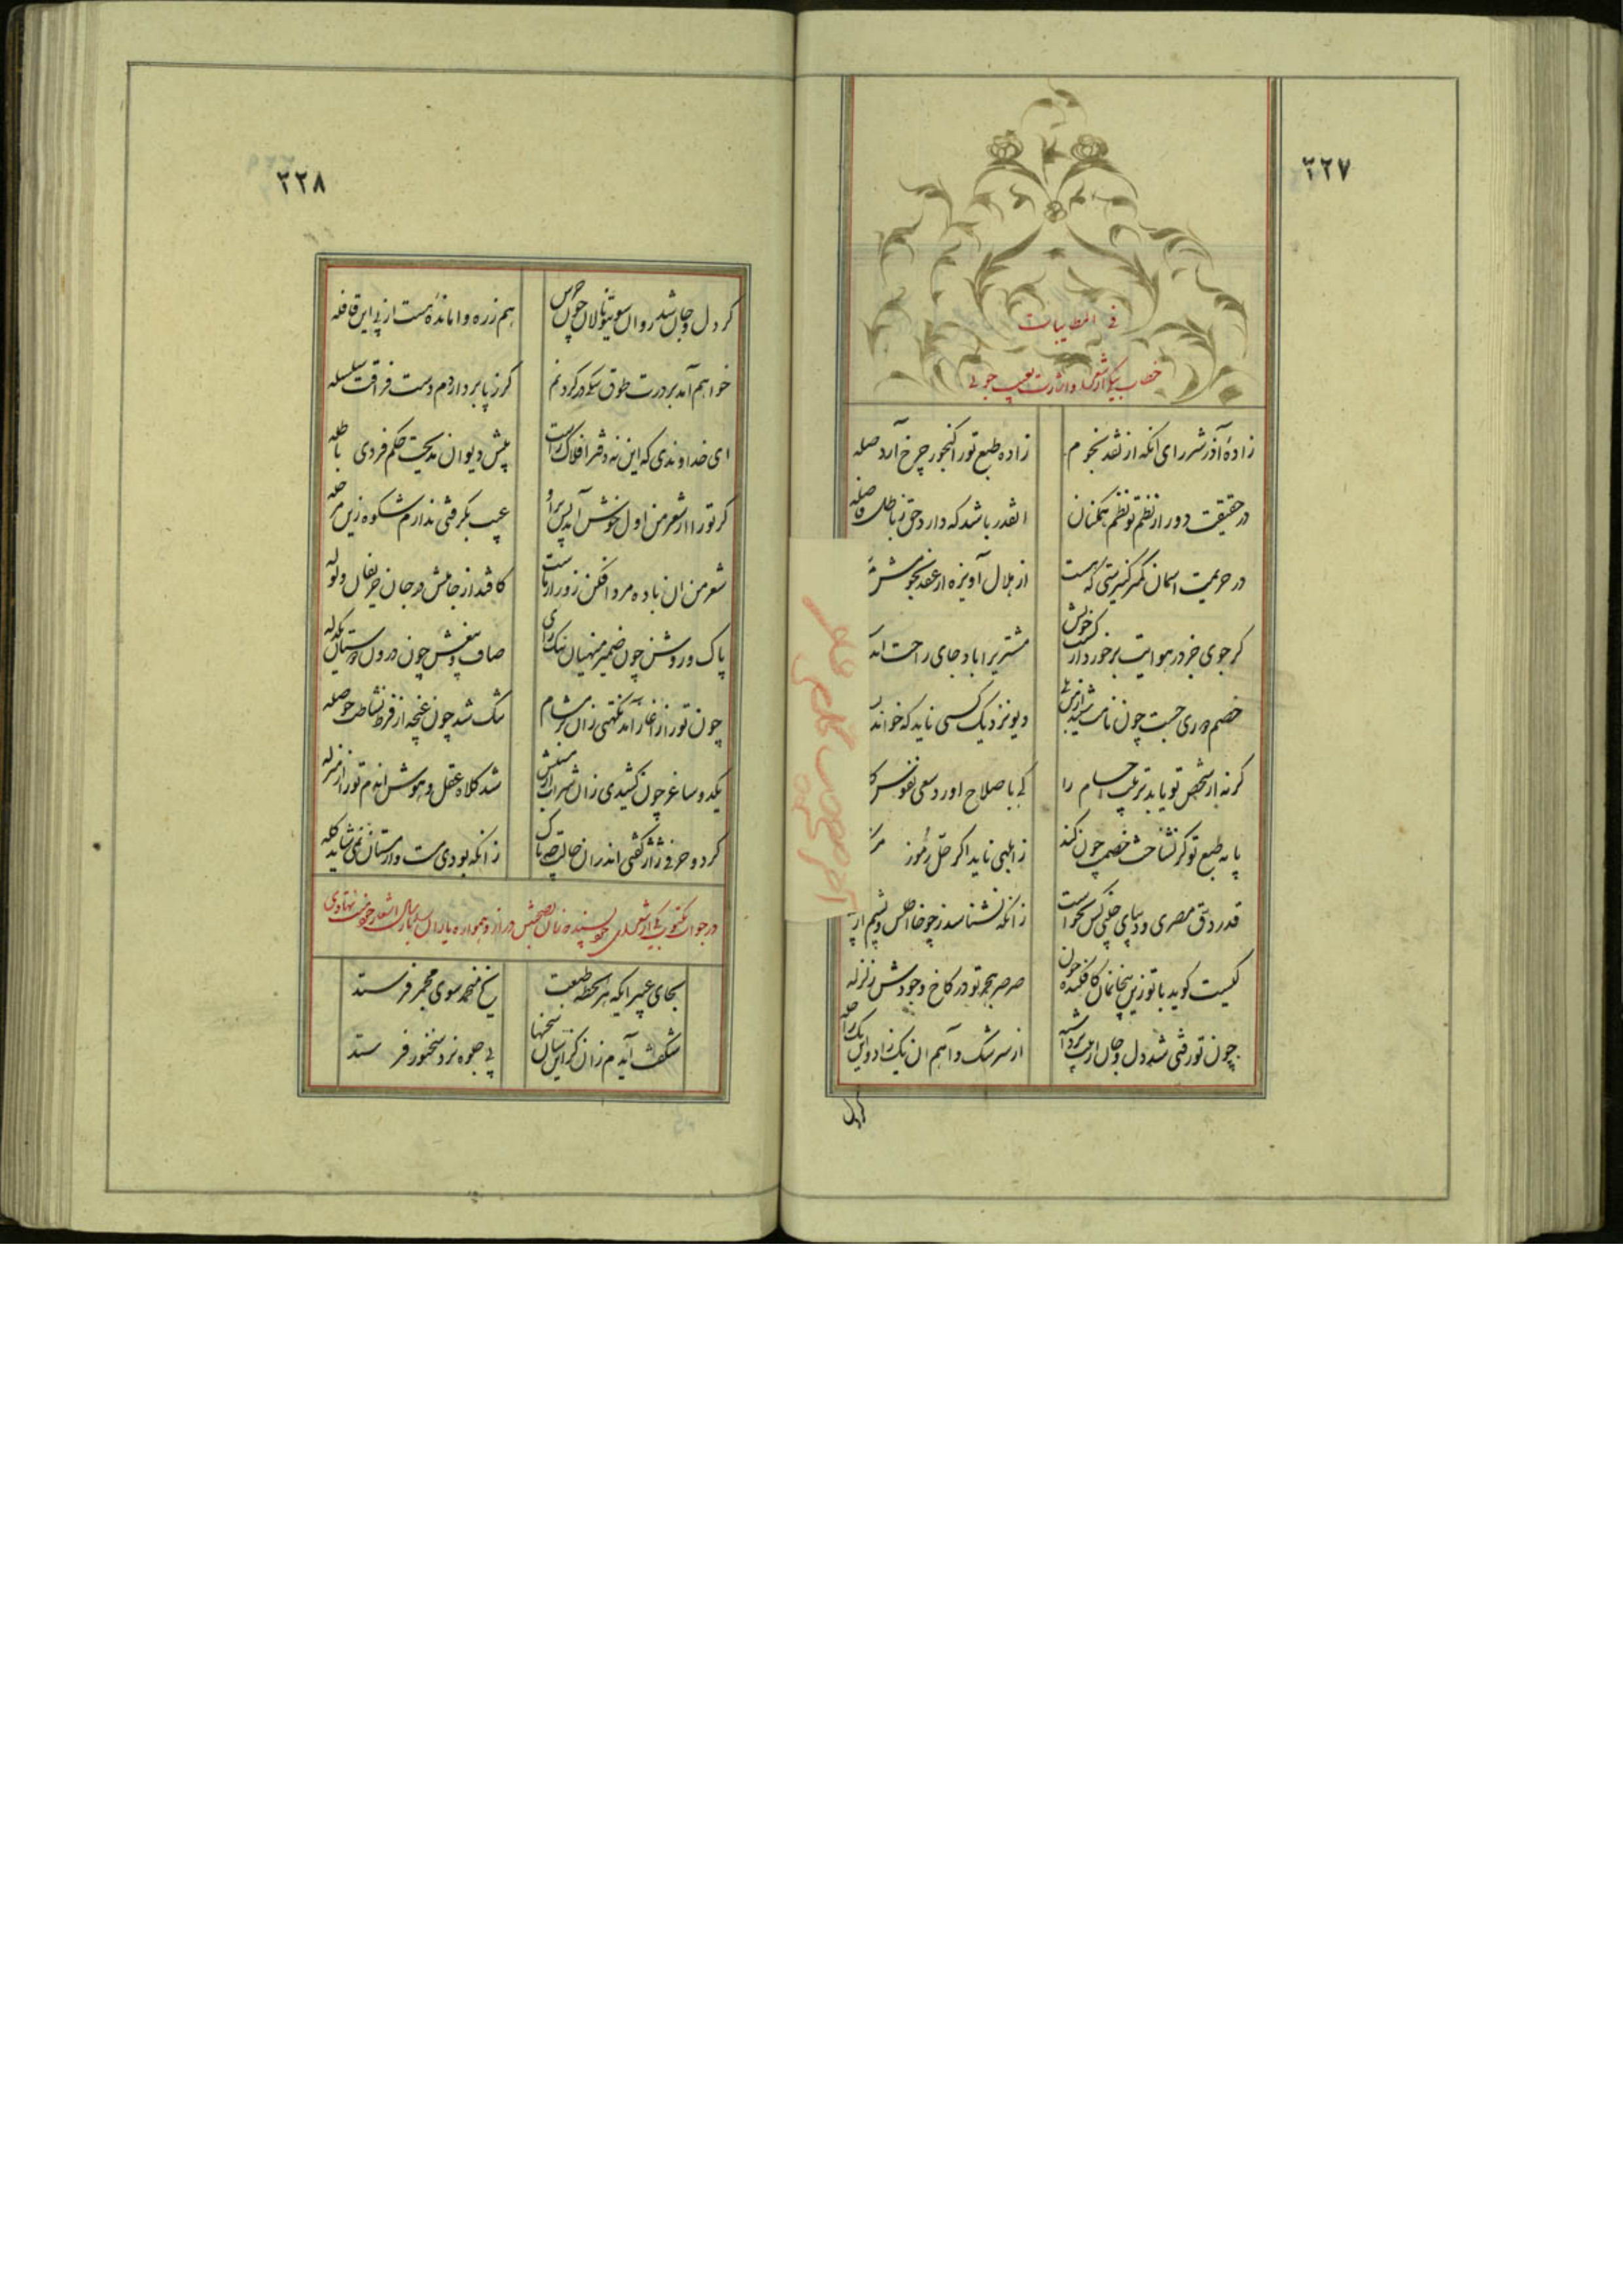 ۳۲۷
فی المطایبات
خطاب بیکی از شعرا و اشارت بعیب جوئی
زادهٔ آذر شرر رای آنکه از نقد نجوم
زاده طبع تو را گنجور چرخ آرد صله
در حقیقت دور از نظم تو نظم همکنان
آنقدر باشد که دارد حق ز باطل فاصله
در حریمت آسمان کمتر کنیزی که هست
از هلال آویزه از عقد نجومش
گر جوی خر در هوایت برخورد از کشت خویش
مشتریرا باد جای راحت اند
خصم
دیو نزدیک کسی ناید که خواند
گر نه از شخص تو یابد تربیت اجسام را
کی باصلاح آورد سعی نفوس
پایه طبع تو گر نشناخت خصمت چون کند
ز ابلهی ناید اگر حل رموز
قدر دق مصری و دیبای چینی کس نخواست
زانکه نشناسد ز چوخا اطلس و پشم از
کیست گوید با تو زین بیخانمان کافکنده چون
صرصر هجر تو در کاخ وجودش زلزله
چون تو رفتی شد دل و جان از پیت برداشته
از سرشک و آهم آن یک زاد و این یک راحله
گر دل
۳۲۸
گر دل و جان شد روان سویتو نالان چون جرس
هم ز ره وامانده‌ست از پی این قافله
خواهم آمد بر درت طوق سگی در گردنم
گر ز پا بردارد م دست فراقت سلسله
ای خداوندی که این نه دفتر افلاک راست
پیش دیوان مدیحت حکم فردی باطله
گر تو را از شعر من اول خوش آمد پس بر او
عیب بگرفتی ندارم شکوه زین مرحله
شعر من آن باده مرد افکن زورآزماست
کافتد از جامش در جان حریفان ولوله
پاک و روشن چون ضمیر منهیان نیک رای
صاف و بیغش چون درون دوستان یکدله
چون تو را ز آغاز آمد نکهتی زان بر مشام
تنگ شد چون غنچه از فرط نشاطت حوصله
یکدو ساغر چون کشیدی زان شراب
شد کلاه عقل و هوش اندم تو را از سر یله
گر دو حرفی ژاژ گفتی اندر آن حالت چه باک
زانکه بودی مست و از مستان نمی‌شاید گله
در جواب مکتوب یکی از شعرای
بجای عبیر آنکه هر لحظه طبعت
یخ منجمد سوی مجمر فرستد
شگفت آیدم زان کز اینسان سخنها
پی جلوه نزد سخنور فرستد